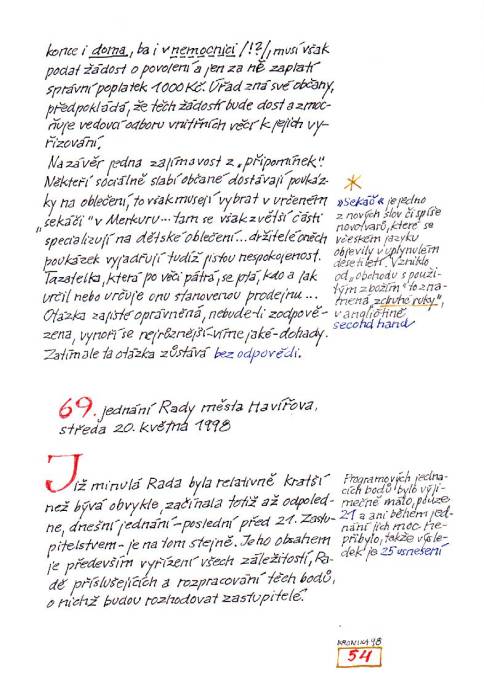 konce i doma, ba i v nemocnici /!?/, musí však
podat žádost o povolení a jen za ně zaplatí
správní poplatek 1000 Kč. Úřad zná své občany,
předpokládá, že těch žádostí bude dost a zmoc-
ňuje vedoucí odboru vnitřních věcí k jejich vy-
řizování.
Na závěr jedna zajímavost z „připomínek“.
Někteří sociálně slabí občané dostávají poukáz-
ky na oblečení, to však musejí vybrat v určeném
„sekáči“ v Merkuru... tam se však z větší části
specializují na dětské oblečení... držitelé oněch
poukázek vyjadřují tudíž jistou nespokojenost.
Tazatelka, která po věci pátrá, se ptá, kdo a jak
určil nebo určuje onu stanovenou prodejnu...
Otázka zajisté oprávněná, nebude-li zodpově-
zena, vynoří se nejrůznější-víme jaké-dohady.
Zatím ale ta otázka zůstává bez odpovědi.
*
„Sekáč“ je jedno
z nových slov či spíše
novotvarů, které se
v českém jazyku
objevily v uplynulém
desetiletí. Vzniklo
od „obchodu s použi-
tým zbožím“ to zna-
mená „z druhé ruky“,
v angličtině
second hand
69. jednání Rady města Havířova,
středa 20. května 1998
Již minulá Rada byla relativně kratší
než bývá obvykle, začínala totiž až odpoled-
ne, dnešní jednání-poslední před 21. Zastu-
pitelstvem-je na tom stejně. Jeho obsahem
je především vyřízení všech záležitostí, Ra-
dě příslušejících a rozpracování těch bodů,
o nichž budou rozhodovat zastupitelé.
Programových jedna-
cích bodů bylo výji-
mečně málo, pouze
21 a ani během jed-
nání jich moc ne-
přibylo, takže výsle-
dek je 25 usnesení
KRONIKA 98
54